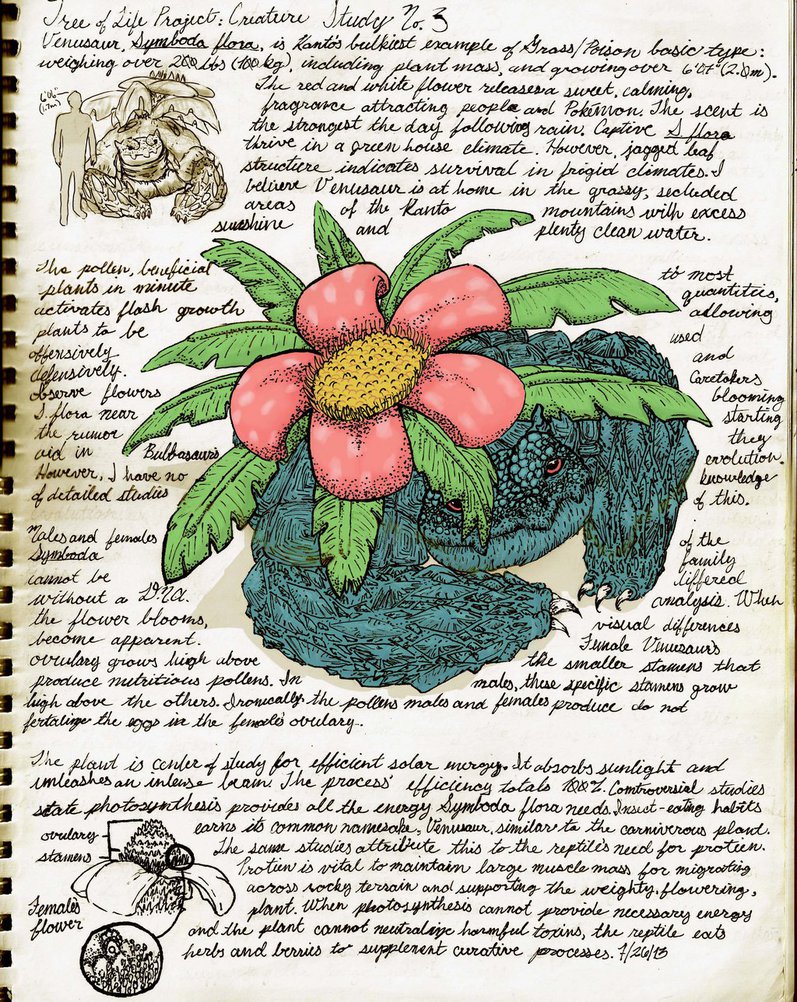 Tree of Life Project: Creature Study No. 3
Venusaur, Symboda flora, is Kanto's bulkiest example of Grass/Poison basic type:
weighing over 200 lbs (100 kg), including plant mass, and growing over 6'07" (2.0m).
The red and white flower releases a sweet, calming,
6'00"
(1.7m)
fragrance attracting people and Pokémon. The scent is
the strongest the day following rain. Captive S. flora
thrive in a green house climate. However, jagged leaf
structure indicates survival in frigid climates. I
believe Venusaur is at home in the grassy, secluded
areas of the Kanto mountains with excess
sunshine and plenty clean water.
The pollen, beneficial to most
plants in minute quantities,
activates flash growth allowing
plants to be used
offensively and
defensively. Caretakers
observe flowers blooming
S. flora near starting
the rumor they
aid in Bulbasaur's evolution.
However, I have no knowledge
of detailed studies of this.
Males and females of the
Symboda family
cannot be differed
without a DNA analysis. When
the flower blooms, visual differences
become apparent. Female Venusaur's
ovulary grows high above the smaller stamens that
produce nutritious pollens. In males, these specific stamens grow
high above the others. Ironically, the pollens males and females produce do not
fertalize the eggs in the female's ovulary.
The plant is center of study for efficient solar energy. It absorbs sunlight and
unleashes an intense beam. The process' efficiency totals 100%. Controversial studies
state photosynthesis provides all the energy Symboda flora needs. Insect-eating habits
earns its common namesake, Venusaur, similar to the carniverous plant.
The same studies attribute this to the reptile's need for protien.
Protien is vital to maintain large muscle mass for migrating
across rocky terrain and supporting the weighty, flowering,
plant. When photosynthesis cannot provide necessary energy
and the plant cannot neutralize harmful toxins, the reptile eats
herbs and berries to supplement curative processes. 7/26/13
ovulary
stamens
Female's
flower